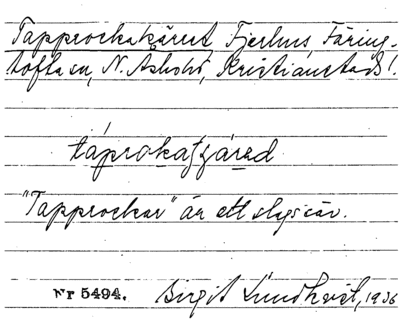 Tapprockakärret, Fjerhus, Färing-
tofta sn, N. Åsbohd, Kristianstads l.
táprokaʃʒáred
"Tapprockar" är ett slags säv.
Nr 5494. Birgit Lundkvist, 1936